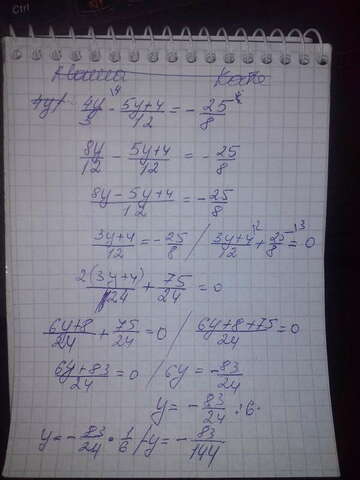 4y/3 - 5y+4/12 = - 25/8
8y/12 - 5y+4/12 = - 25/8
8y-5y+4/12 = - 25/8
3y+4/12 = - 25/8 / 3y+4/12 + 25/8 = 0
2(3y+4)/24 + 75/24 = 0
6y+8/24 + 75/24 = 0 / 6y+8+75/24 = 0
6y+83/24 = 0 / 6y = - 83/24
y = - 83/24 : 6
y = - 83/24 · 1/6 / y = - 83/144